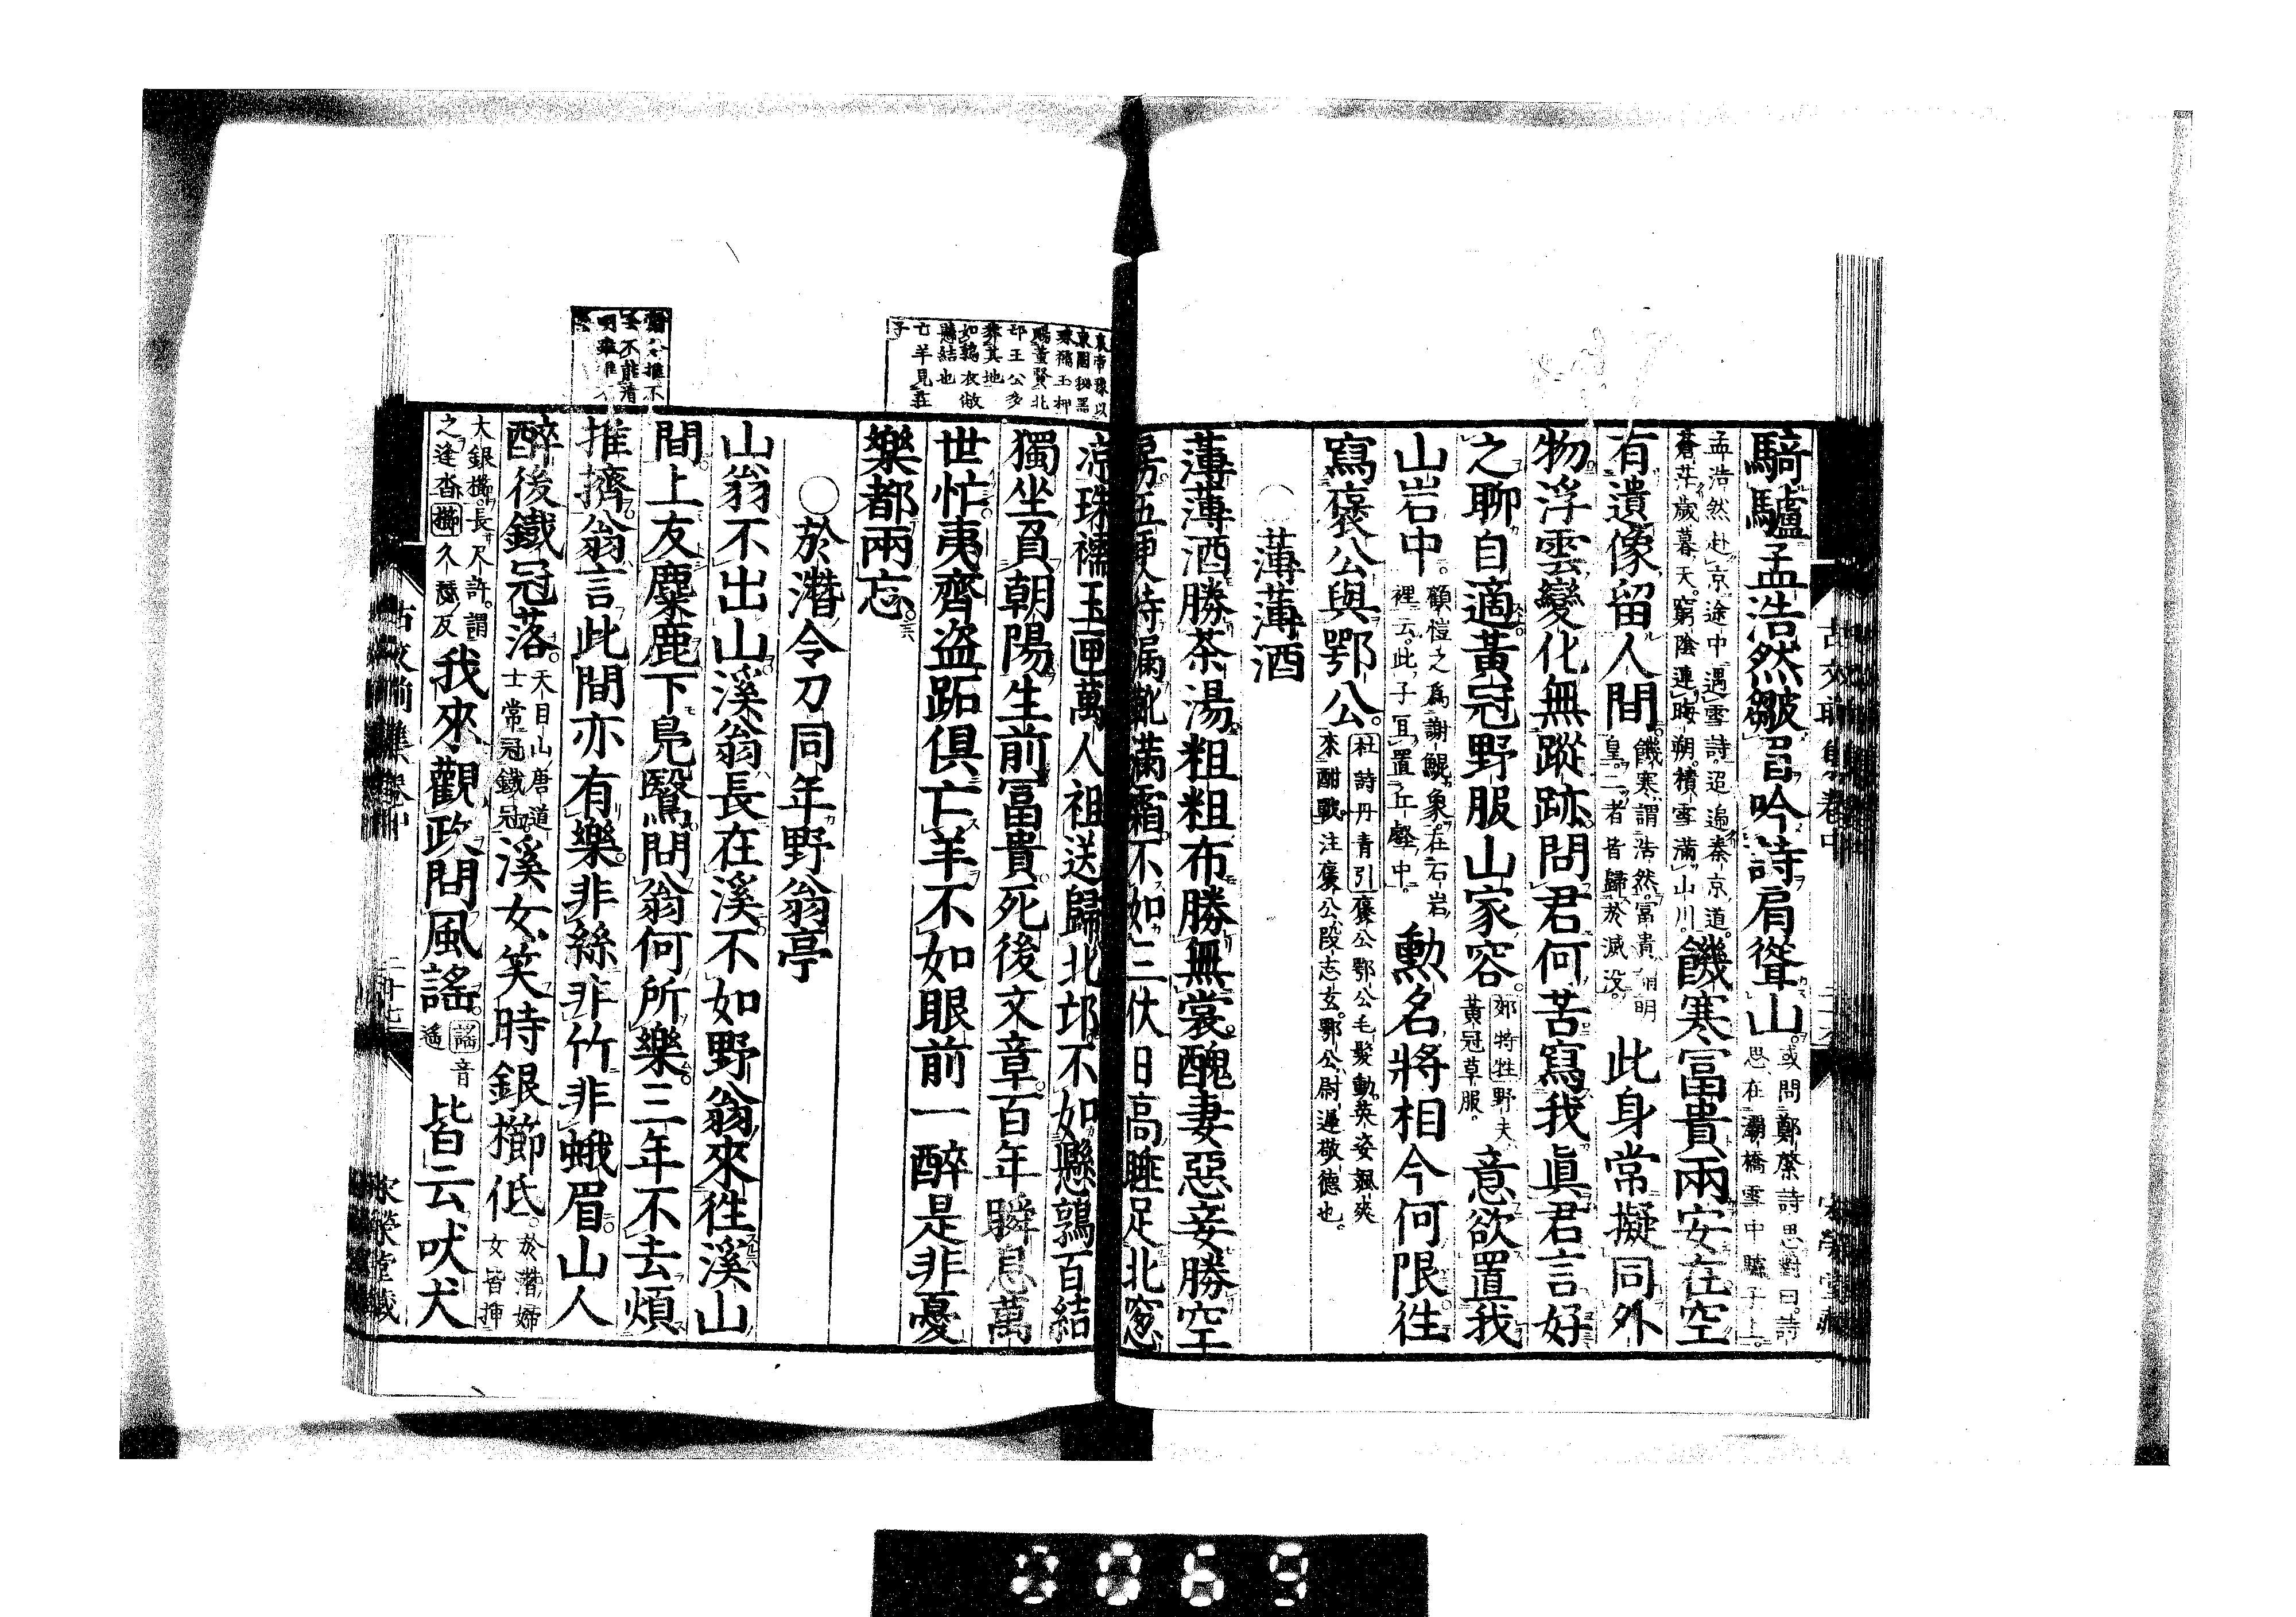 騎驢孟浩然皺眉吟詩肩聳山。或問鄭綮詩思對曰。詩思在灞橋雪中驢子上。
孟浩然赴京途中遇雪詩。迢遞秦京道。蒼茫歲暮天。窮陰連晦朔。積雪滿山川。饑寒富貴兩安在空
有遺像留人間。饑寒謂浩然。富貴明皇。二者皆歸於滅没。此身常擬同外
物浮雲變化無蹤跡。問君何苦寫我眞君言好
之聊自適。黃冠野服山家容。郊特牲野夫黃冠草服。意欲置我
山岩中。顧愷之爲謝鯤象。在石岩裡云。此子宜置丘壑中。勲名將相今何限徃
寫褒公與鄂公。杜詩丹青引褒公鄂公毛髮動。英姿颯爽來酣戰。注褒公段志玄。鄂公尉遲敬德也。
○薄薄酒
薄薄酒勝茶湯。粗粗布勝無裳。醜妻惡妾勝空
房。五更待漏靴滿霜。不如三伏日高睡足北窓
凉。珠襦玉匣萬人祖送歸北邙。不如懸鶉百結
獨坐負朝陽。生前冨貴。死後文章。百年瞬息萬
世忙。夷齊盗跖俱亡羊。不如眼前一醉是非憂
樂都兩忘。
○於潜令刀同年野翁亭
山翁不出山。溪翁長在溪。不如野翁來徃溪山
間。上友麋鹿下鳧鷖。問翁何所樂。三年不去煩
推擠。翁言此間亦有樂。非絲非竹非蛾眉。山人
醉後鐵冠落。天目山唐道士常冠鐵冠。溪女笑時銀櫛低。於潜婦女皆挿
大銀櫛。長尺許。謂之逢沓。櫛久瑟反我來觀政問風謠。謠音遙皆云吠犬
哀帝豫以
東園秘器
珠襦玉柙
賜董賢北
邙王公多
葬其地
如鶉衣敝
懸結也
亡羊見荘
子
古文前集卷中
二十七